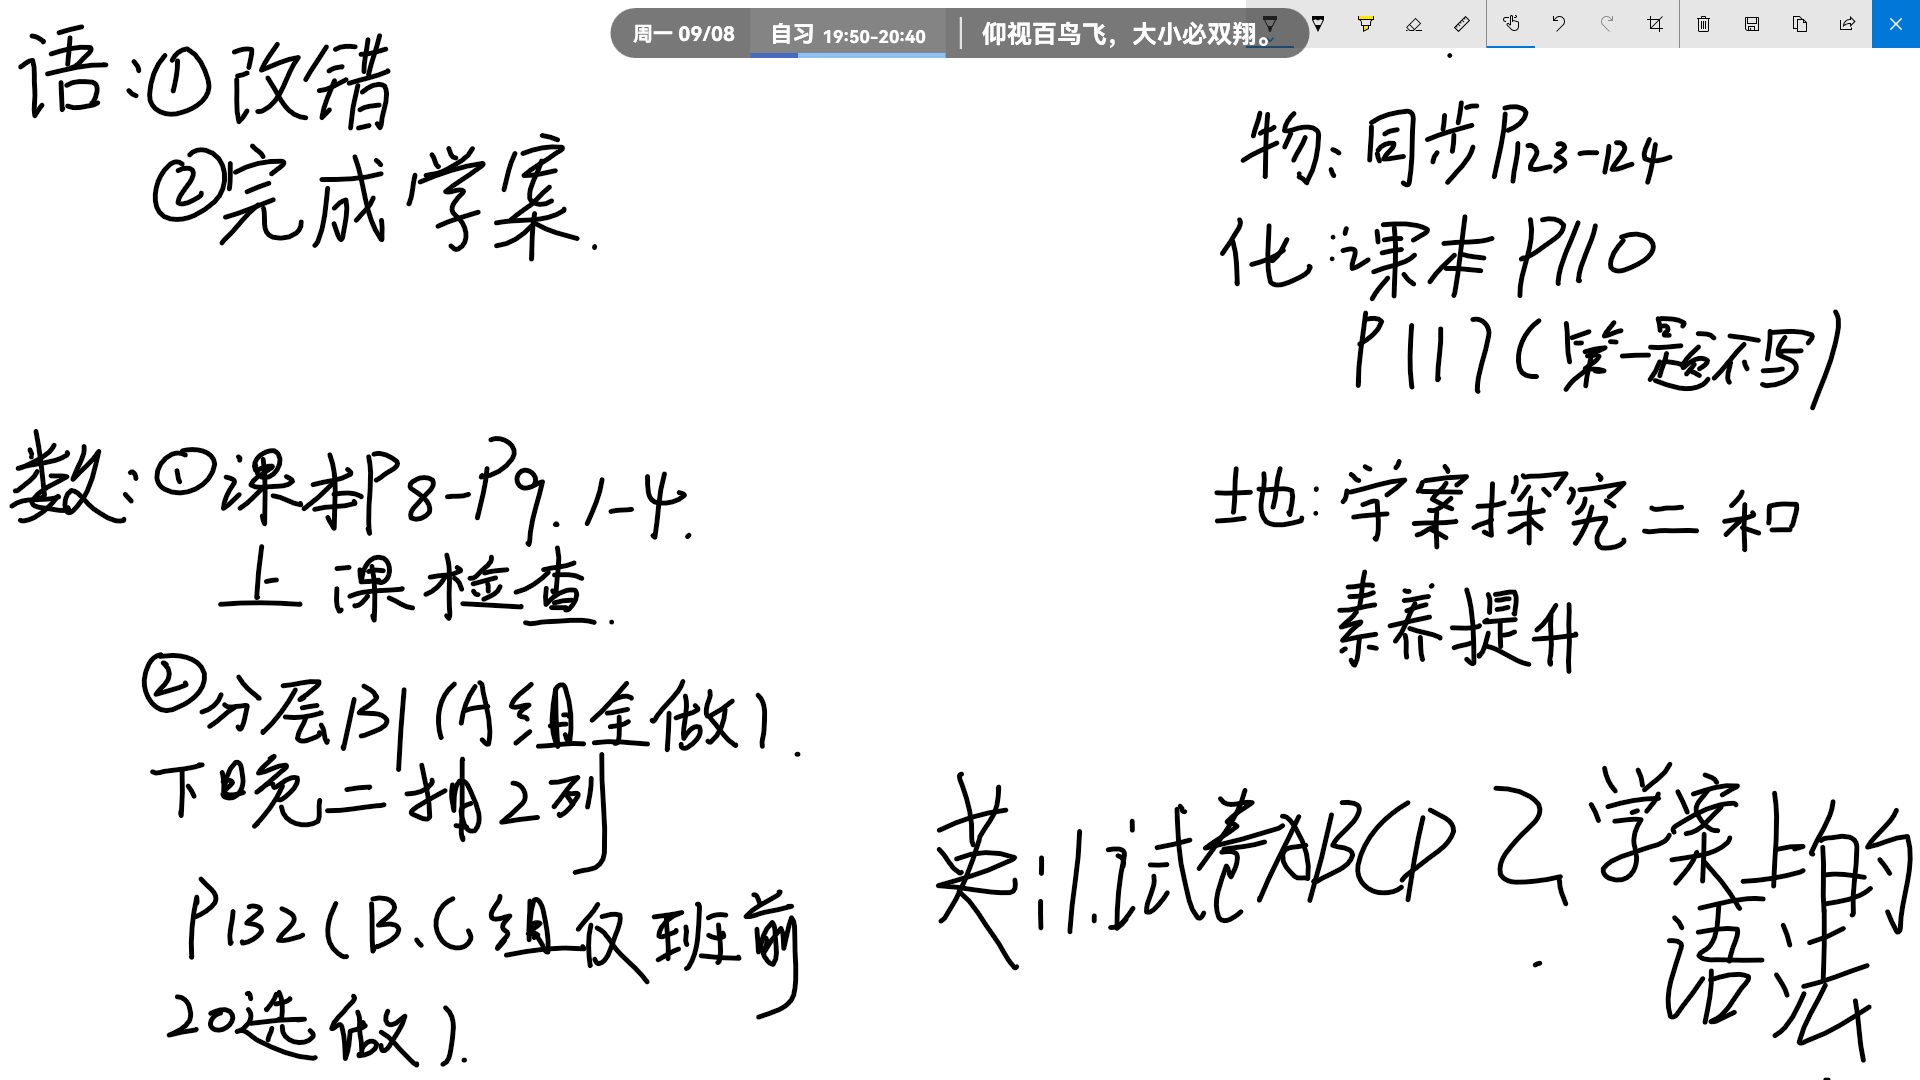 周一 09/08 自习 19:50-20:40 仰视百鸟飞，大小必双翔。
语:①改错
②完成学案.
数:①课本P8-P9. 1-4.
上课检查.
②分层B1(A组全做).
下日晚二抽2列
P132(B、C组仅班前
20选做).
物:同步P123-124
化:课本P110
P117(第一题不写)
地:学案探究二和
素养提升
英:1.试卷ABCD 2.学案上的
语法